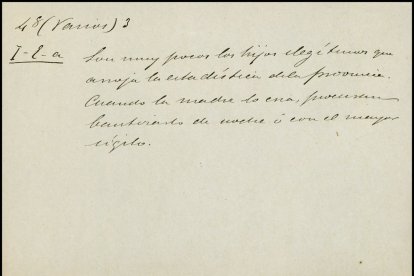 48 (Varios) 3
I-E-a
Son muy pocos los hijos ilegítimos que
arroja la estadística de la provincia.
Cuando la madre lo cria, procuran
bautizarlo de noche ó con el mayor
sigilo.